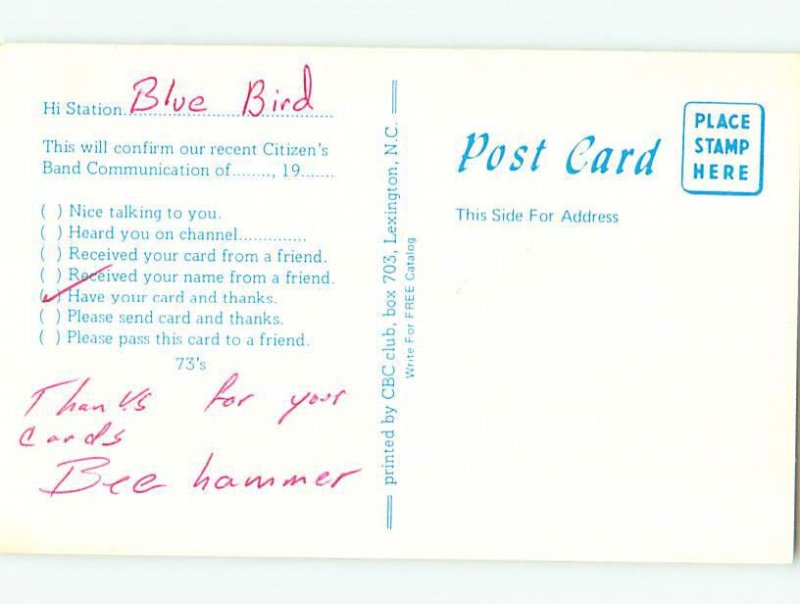 Hi Station Blue Bird
This will confirm our recent Citizen's
Band Communication of........, 19.......
( ) Nice talking to you.
( ) Heard you on channel..............
( ) Received your card from a friend.
( ) Received your name from a friend.
(✓) Have your card and thanks.
( ) Please send card and thanks.
( ) Please pass this card to a friend.
73's
Thanks for your
cards
Bee hammer
printed by CBC club, box 703, Lexington, N.C.
Write For FREE Catalog
Post Card
This Side For Address
PLACE
STAMP
HERE